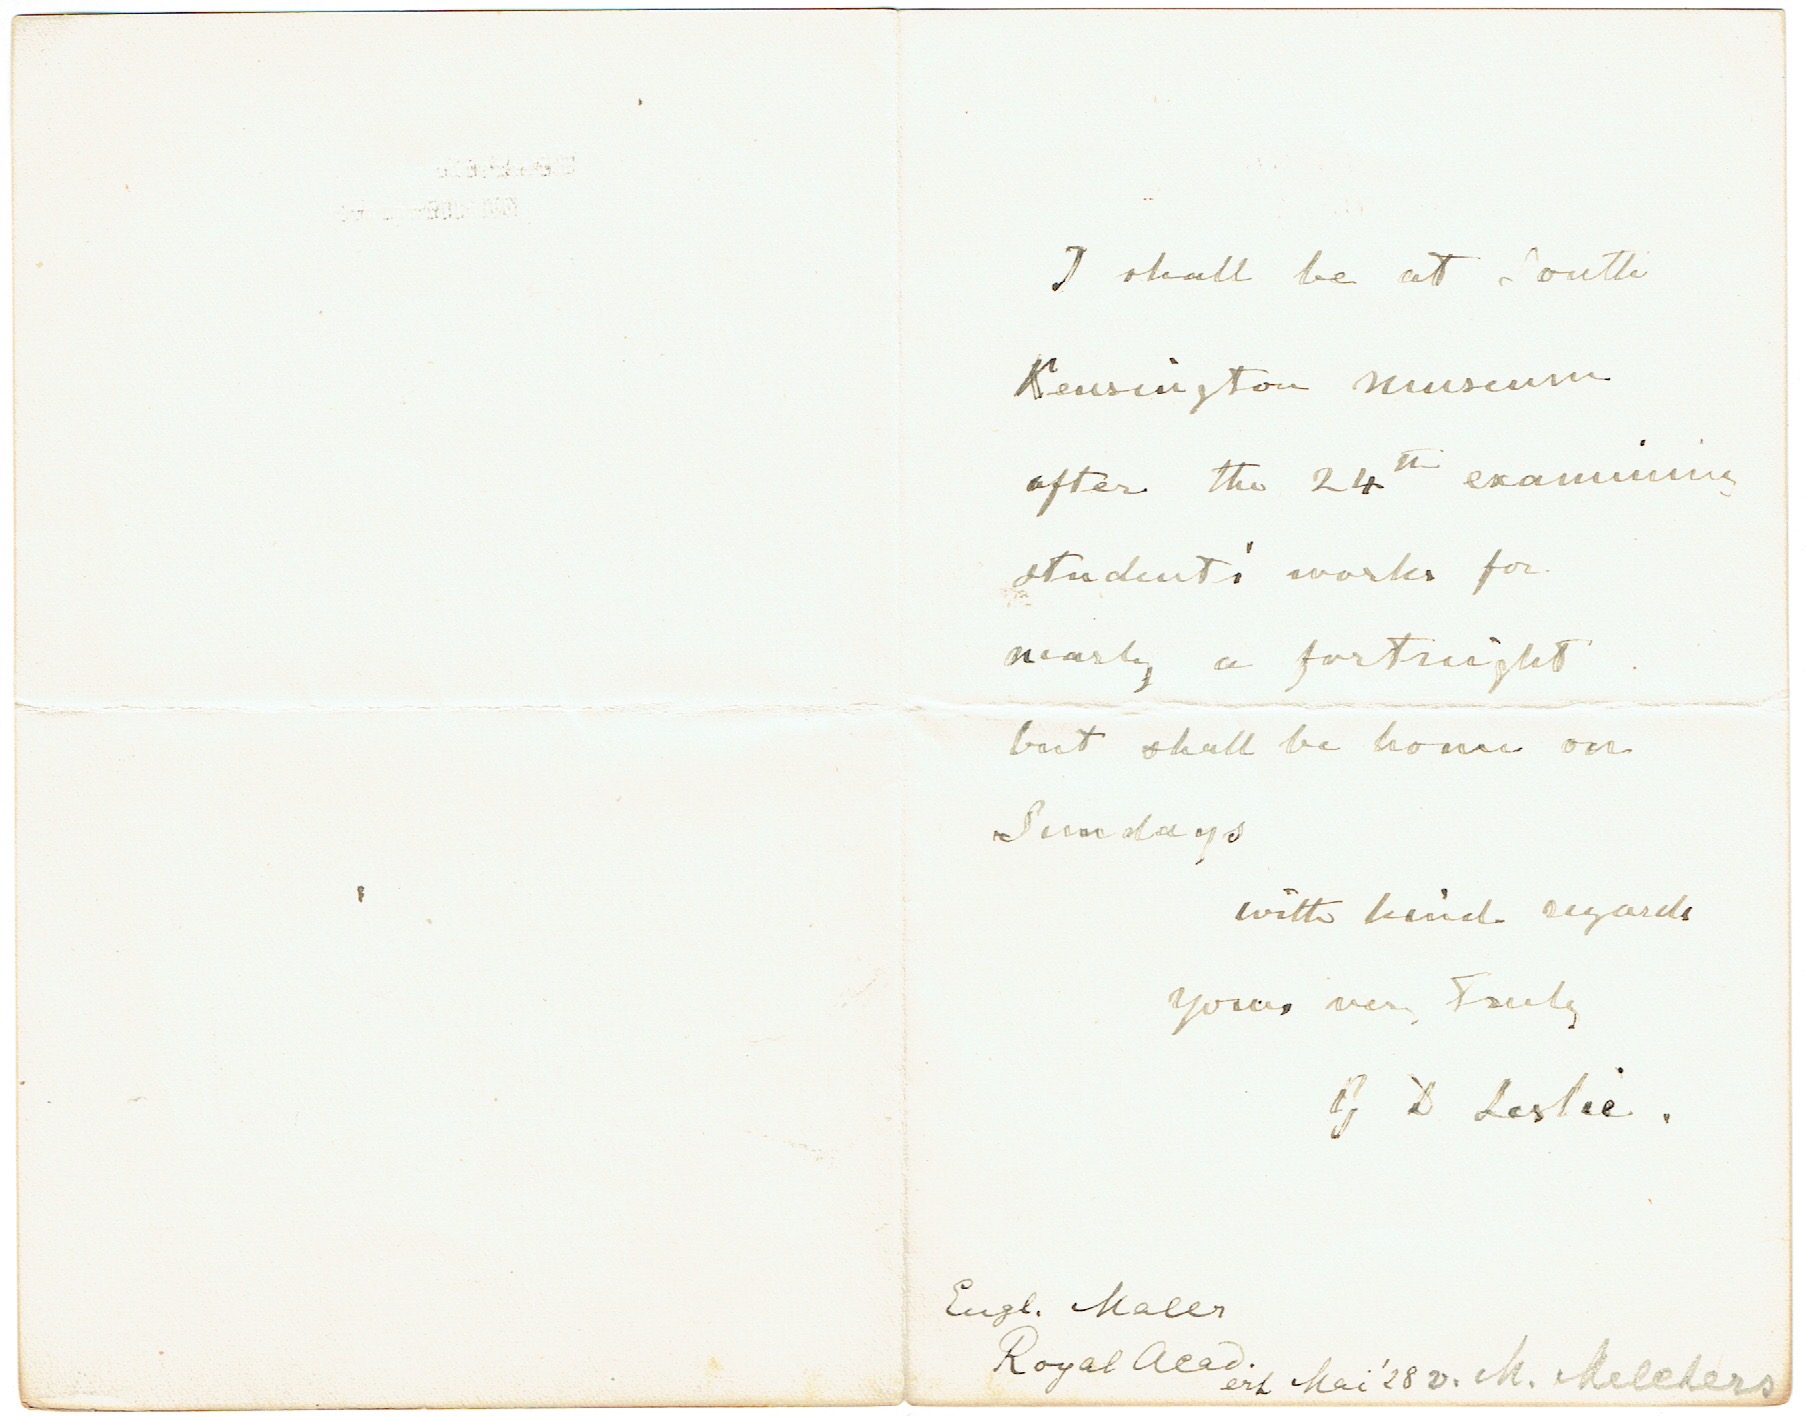 I shall be at South
Kensington Museum
after the 24th examining
student's works for
nearly a fortnight
but shall be home on
Sundays
with kind regards
yours very truly
G D Leslie.
Engl. Maler
Royal Acad.
erh Mai '28 v. M. Melchers